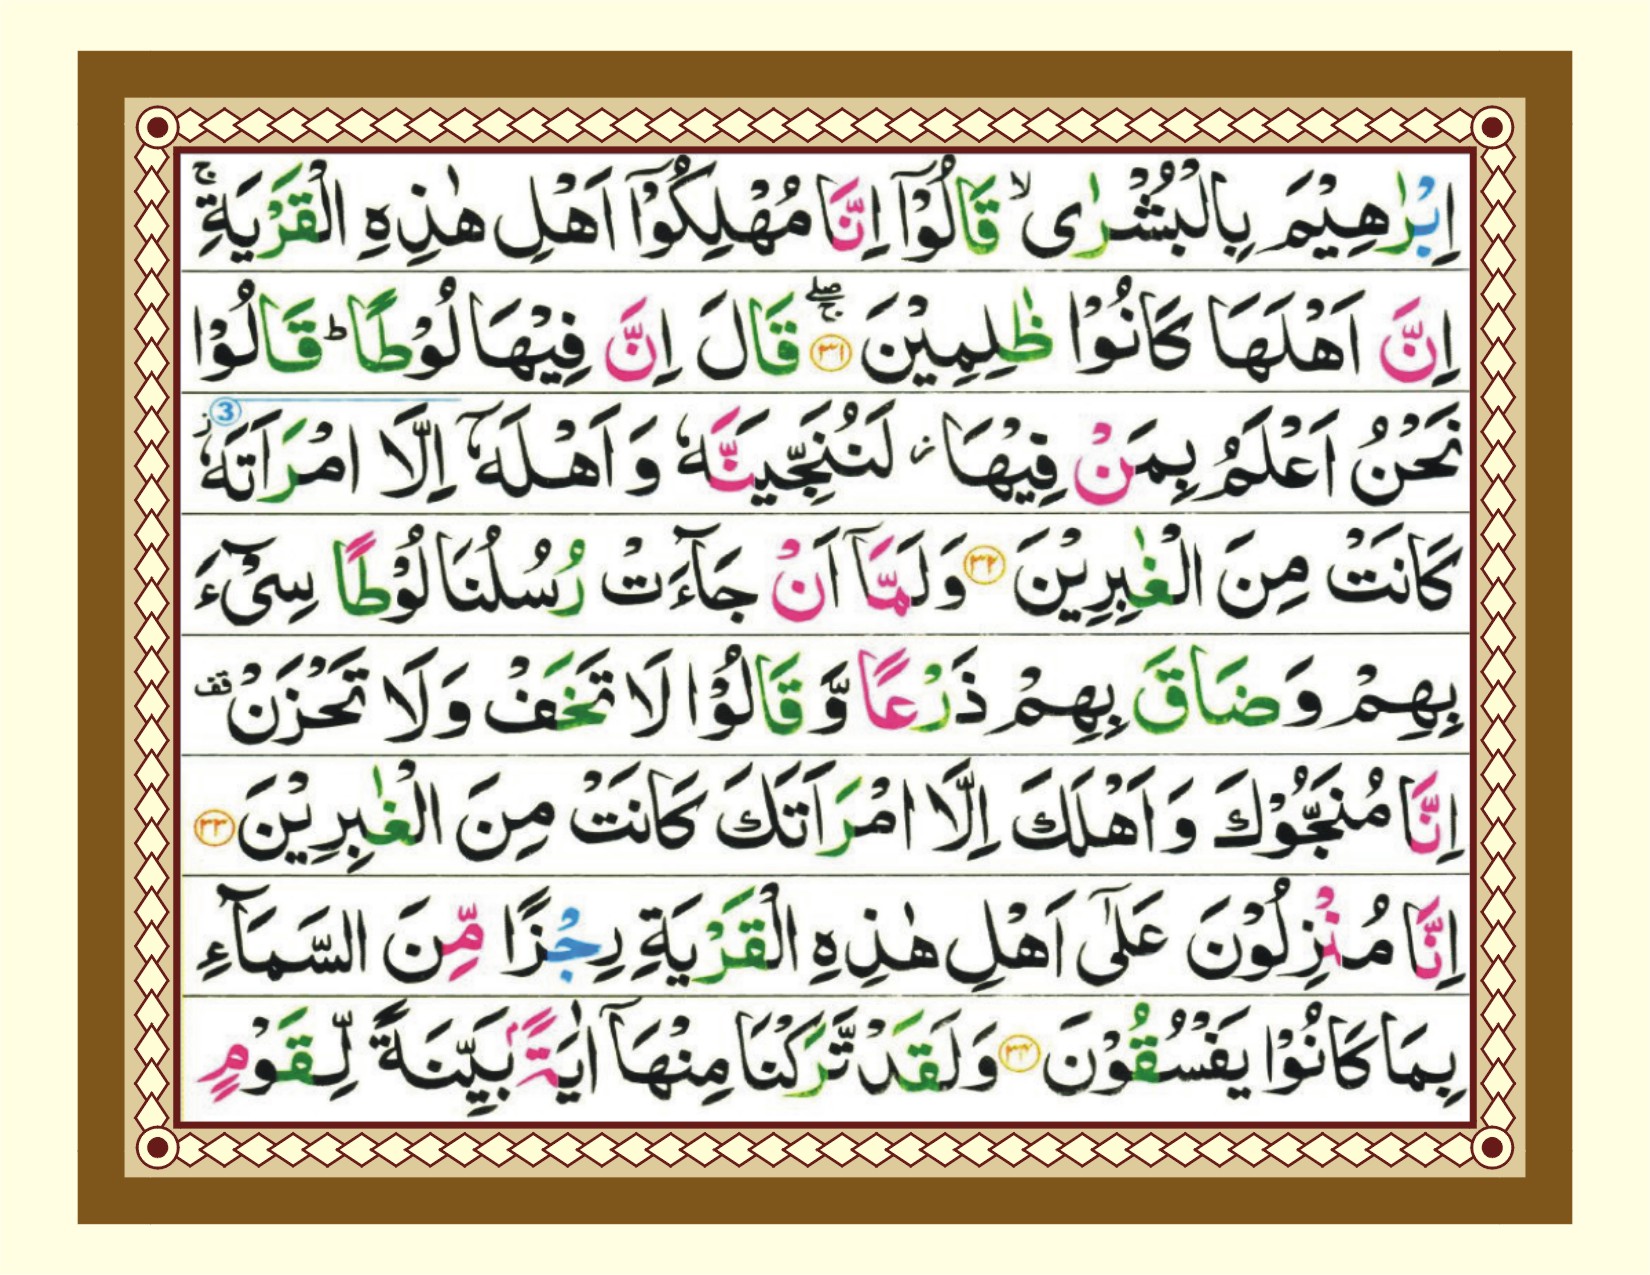 اِبْرٰهِيْمَ بِالْبُشْرٰى ۙ قَالُوْۤا اِنَّا مُهْلِكُوْۤا اَهْلِ هٰذِهِ الْقَرْيَةِ ۚ
اِنَّ اَهْلَهَا كَانُوْا ظٰلِمِيْنَ ۖۚ ﴿۳۱﴾ قَالَ اِنَّ فِيْهَا لُوْطًا ؕ قَالُوْا
3
نَحْنُ اَعْلَمُ بِمَنْ فِيْهَا ؗ لَنُنَجِّيَنَّهٗ وَ اَهْلَهٗۤ اِلَّا امْرَاَتَهٗ ؗ
كَانَتْ مِنَ الْغٰبِرِيْنَ ﴿۳۲﴾ وَ لَمَّاۤ اَنْ جَآءَتْ رُسُلُنَا لُوْطًا سِیْٓءَ
بِهِمْ وَ ضَاقَ بِهِمْ ذَرْعًا وَّ قَالُوْا لَا تَخَفْ وَ لَا تَحْزَنْ قف
اِنَّا مُنَجُّوْكَ وَ اَهْلَكَ اِلَّا امْرَاَتَكَ كَانَتْ مِنَ الْغٰبِرِيْنَ ﴿۳۳﴾
اِنَّا مُنْزِلُوْنَ عَلٰۤى اَهْلِ هٰذِهِ الْقَرْيَةِ رِجْزًا مِّنَ السَّمَآءِ
بِمَا كَانُوْا يَفْسُقُوْنَ ﴿۳۴﴾ وَ لَقَدْ تَّرَكْنَا مِنْهَاۤ اٰيَةًۢ بَيِّنَةً لِّقَوْمٍ